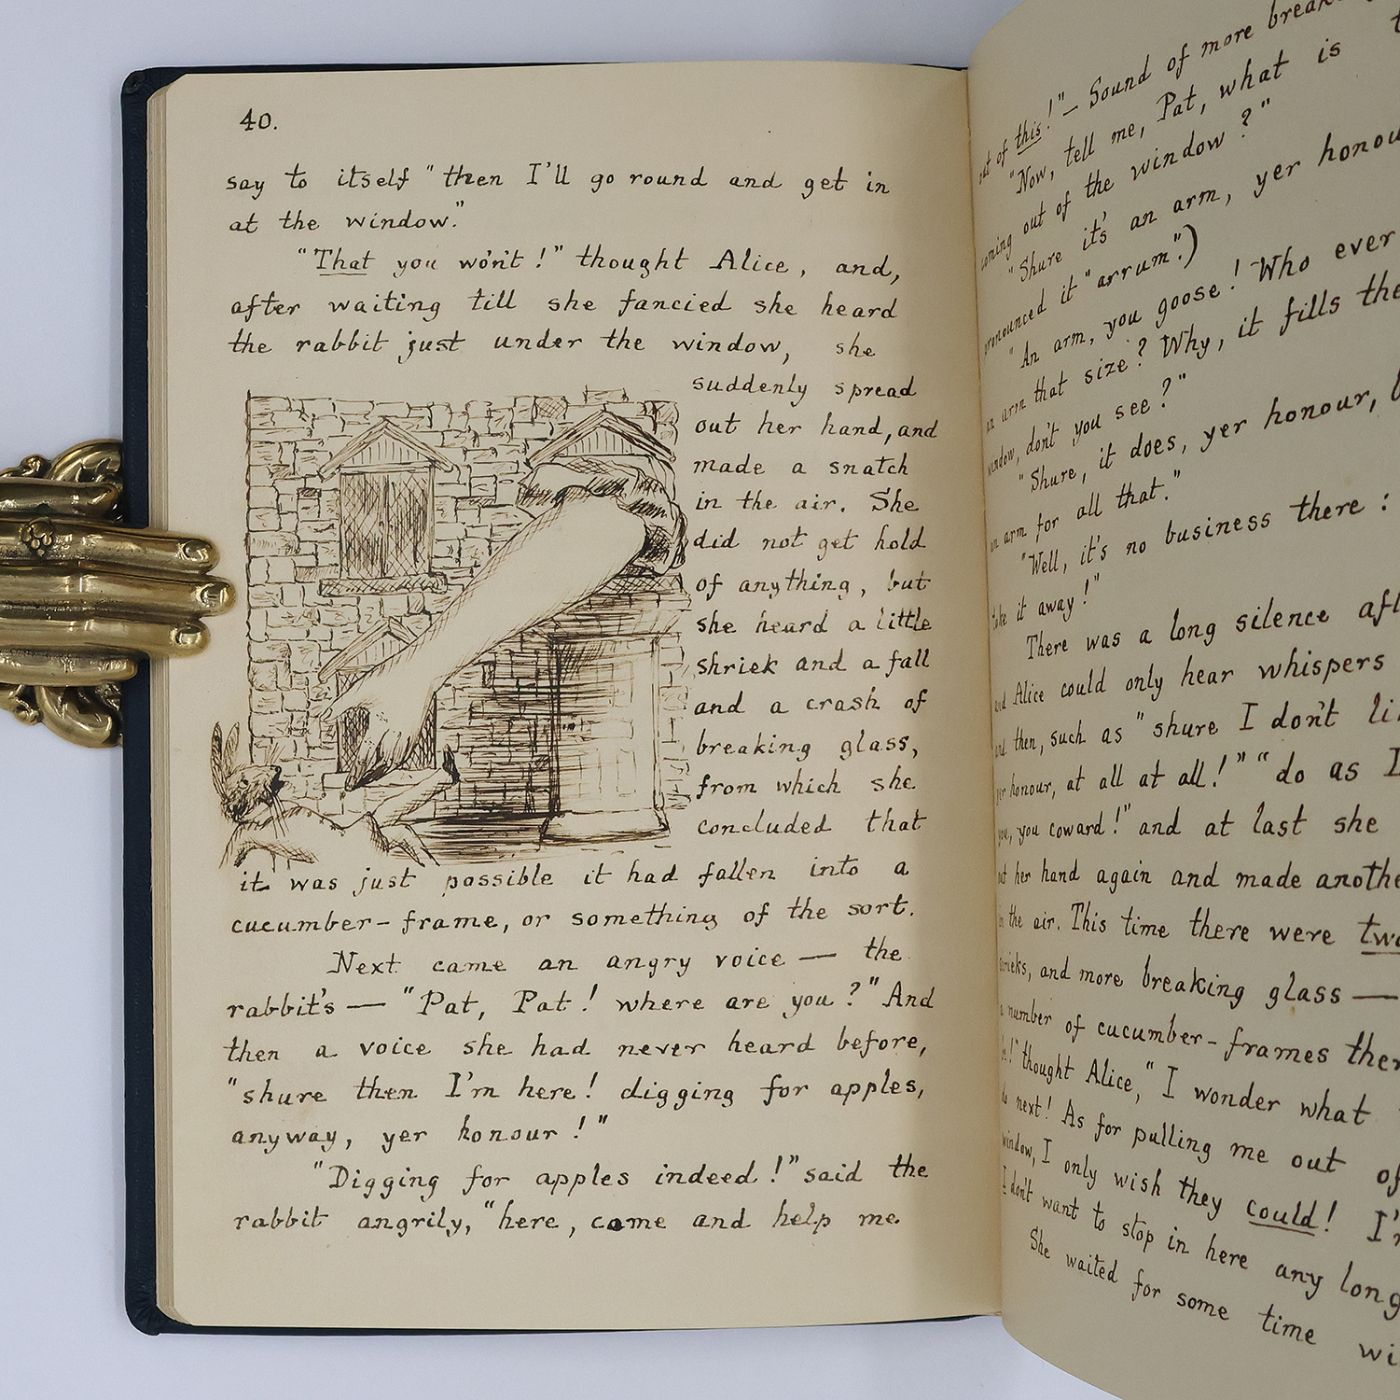 40.
say to itself "then I'll go round and get in
at the window."
"That you wo'n't!" thought Alice, and,
after waiting till she fancied she heard
the rabbit just under the window, she
suddenly spread
out her hand, and
made a snatch
in the air. She
did not get hold
of anything, but
she heard a little
shriek and a fall
and a crash of
breaking glass,
from which she
concluded that
it was just possible it had fallen into a
cucumber-frame, or something of the sort.
Next came an angry voice — the
rabbit's — "Pat, Pat! where are you?" And
then a voice she had never heard before,
"shure then I'm here! digging for apples,
anyway, yer honour!"
"Digging for apples indeed!" said the
rabbit angrily, "here, come and help me
out of this!" — Sound of more
"Now, tell me, Pat, what is
coming out of the window?"
"Shure it's an arm, yer
pronounced it "arrum".)
"An arm, you goose! Who ever
an arm that size? Why, it fills the
window, don't you see?"
"Shure, it does, yer honour,
an arm for all that."
"Well, it's no business there:
take it away!"
There was a long silence
and Alice could only hear whispers
and then, such as "shure I don't
yer honour, at all at all!" "do as I
you, you coward!" and at last she
out her hand again and made
in the air. This time there were two
shrieks, and more breaking glass —
a number of cucumber-frames
thought Alice, "I wonder what
do next! As for pulling me out
window, I only wish they could! I'm
I don't want to stop in here any
She waited for some time